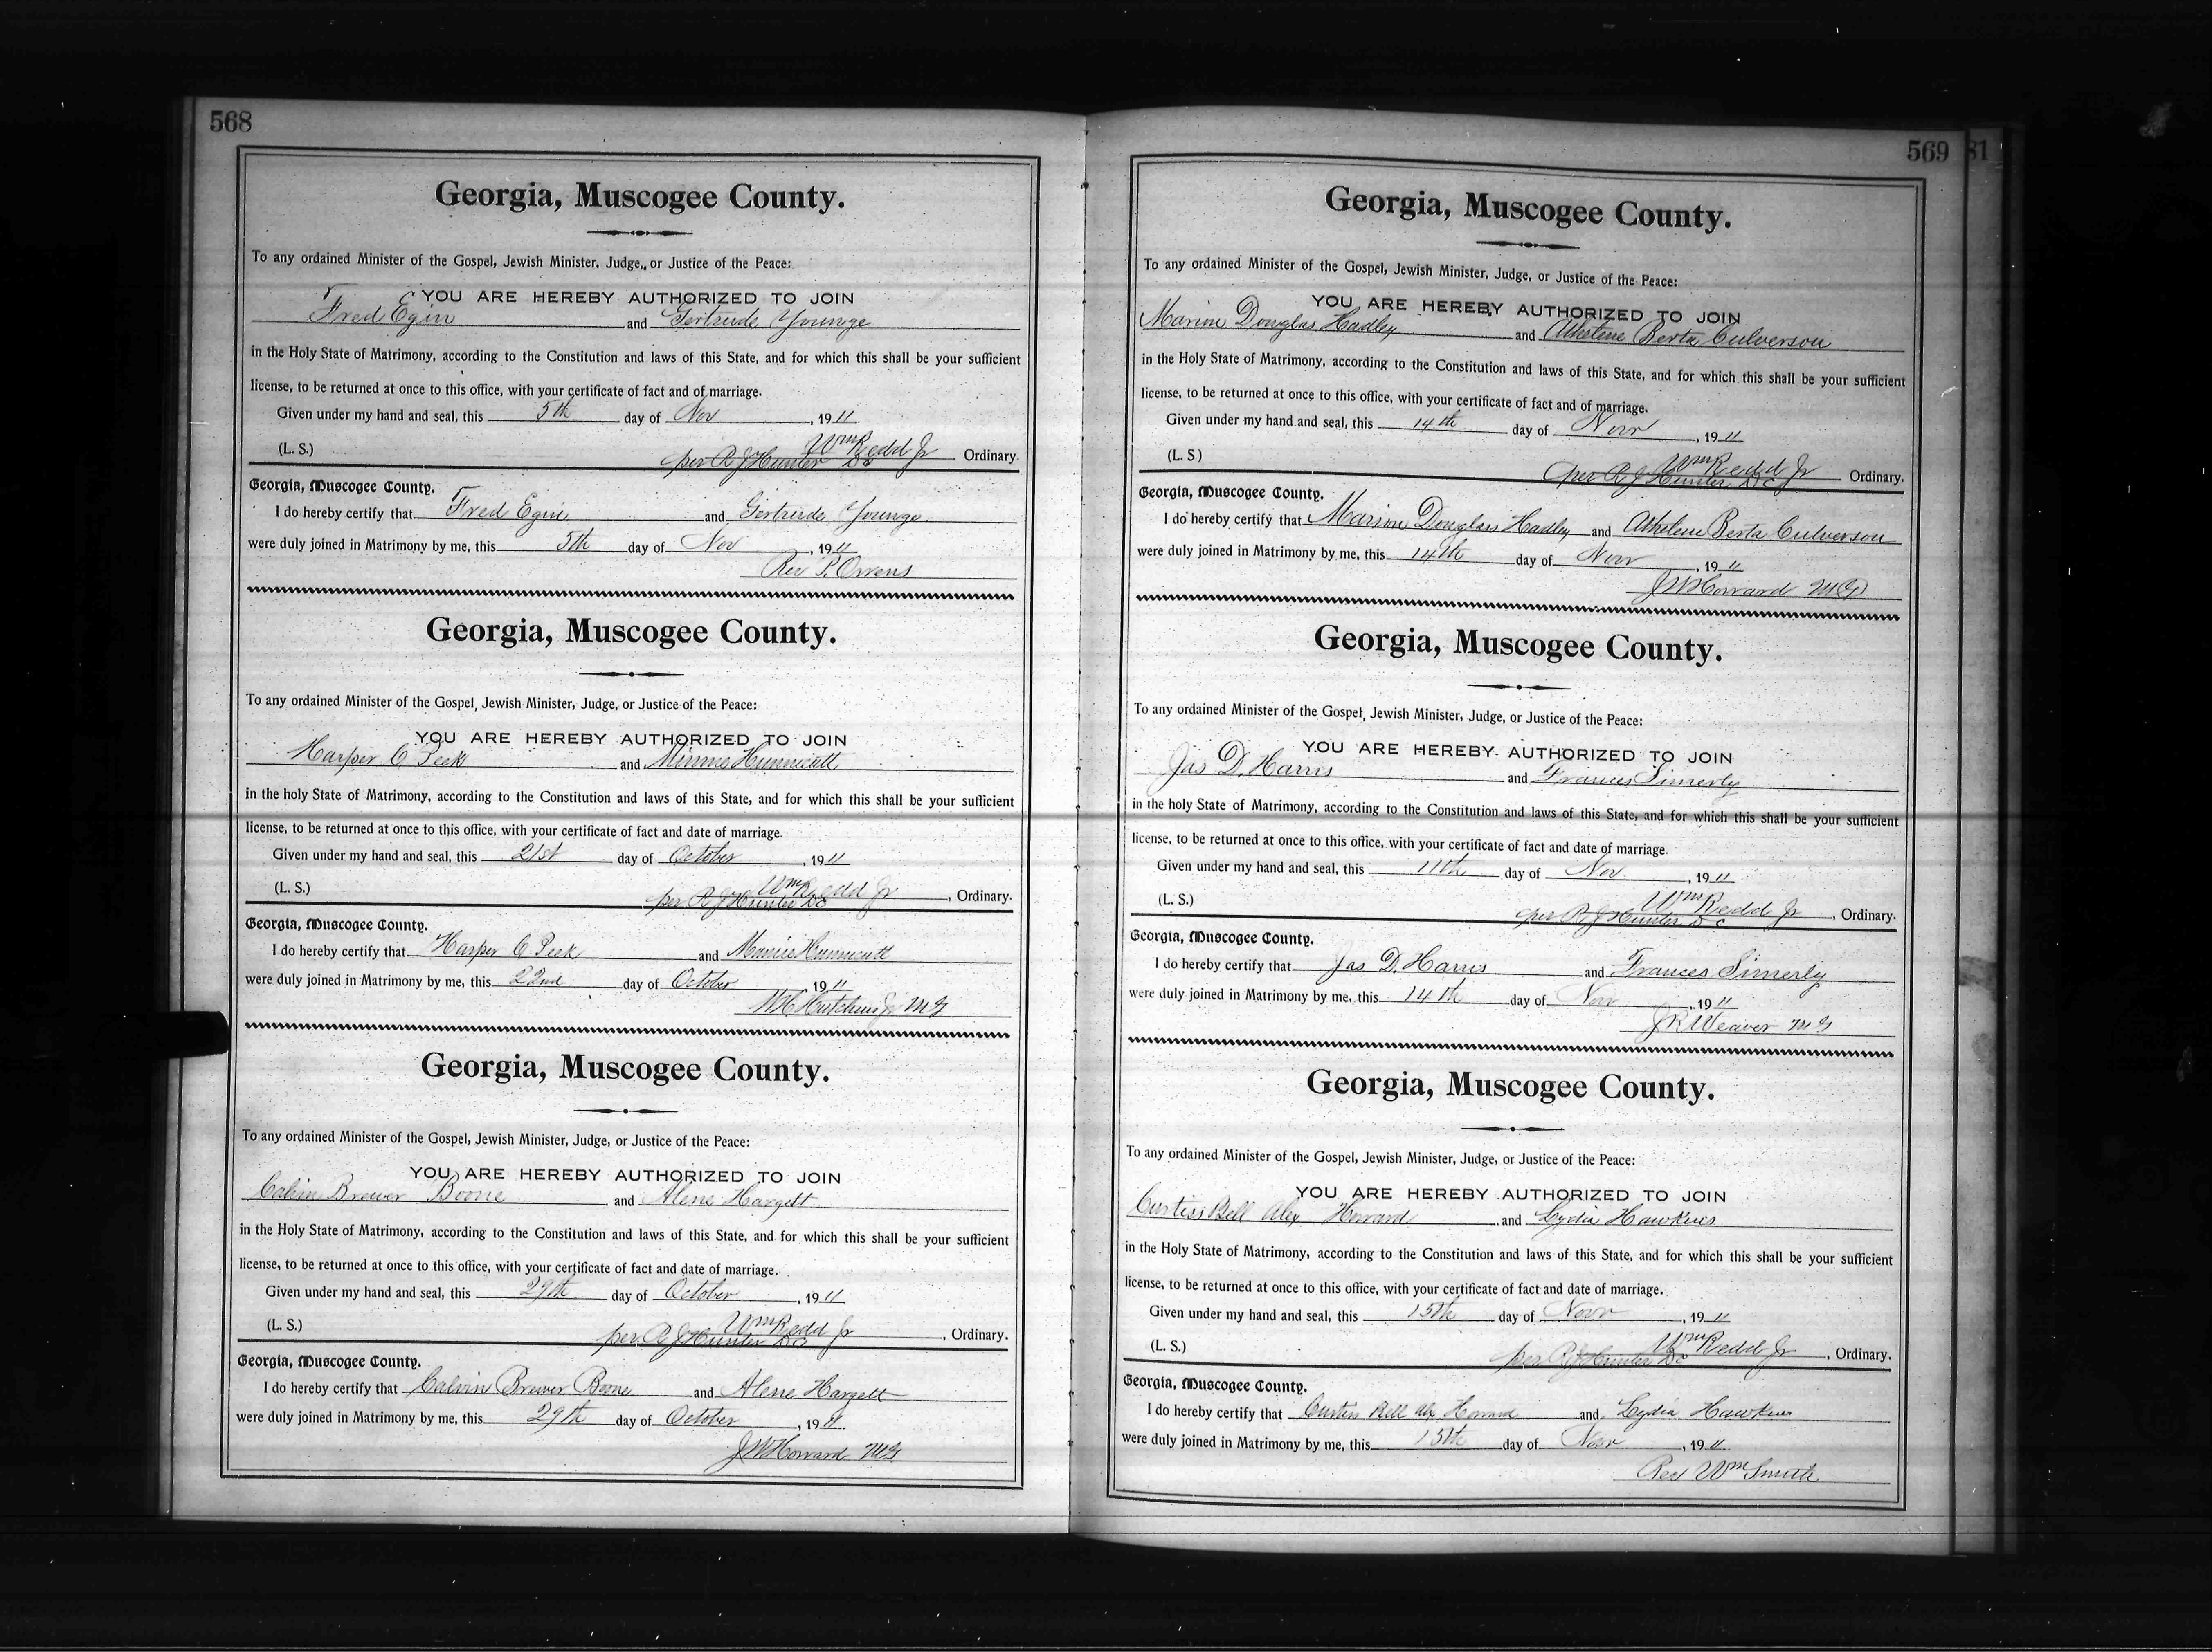 568
Georgia, Muscogee County.
To any ordained Minister of the Gospel, Jewish Minister, Judge, or Justice of the Peace:
YOU ARE HEREBY AUTHORIZED TO JOIN
Fred Egin and Gertrude Younge
in the Holy State of Matrimony, according to the Constitution and laws of this State, and for which this shall be your sufficient
license, to be returned at once to this office, with your certificate of fact and of marriage.
Given under my hand and seal, this 5th day of Nov, 1911
(L. S.) Wm Redd Jr Ordinary.
per R J Hunter DC
Georgia, Muscogee County.
I do hereby certify that Fred Egin and Gertrude Younge
were duly joined in Matrimony by me, this 5th day of Nov, 1911
Rev P. Owens
Georgia, Muscogee County.
To any ordained Minister of the Gospel, Jewish Minister, Judge, or Justice of the Peace:
YOU ARE HEREBY AUTHORIZED TO JOIN
Harper C Peek and Minnie Hunnicutt
in the holy State of Matrimony, according to the Constitution and laws of this State, and for which this shall be your sufficient
license, to be returned at once to this office, with your certificate of fact and date of marriage.
Given under my hand and seal, this 21st day of October, 1911
(L. S.) Wm Redd Jr, Ordinary.
per R J Hunter DC
Georgia, Muscogee County.
I do hereby certify that Harper C Peek and Minnie Hunnicutt
were duly joined in Matrimony by me, this 22nd day of October, 1911
MG
Georgia, Muscogee County.
To any ordained Minister of the Gospel, Jewish Minister, Judge, or Justice of the Peace:
YOU ARE HEREBY AUTHORIZED TO JOIN
Calvin Brewer Boone and Alene Hargett
in the Holy State of Matrimony, according to the Constitution and laws of this State, and for which this shall be your sufficient
license, to be returned at once to this office, with your certificate of fact and date of marriage.
Given under my hand and seal, this 29th day of October, 1911
(L. S.) Wm Redd Jr, Ordinary.
per R J Hunter DC
Georgia, Muscogee County.
I do hereby certify that Calvin Brewer Boone and Alene Hargett
were duly joined in Matrimony by me, this 29th day of October, 1911
J W Howard MG
569
81
Georgia, Muscogee County.
To any ordained Minister of the Gospel, Jewish Minister, Judge, or Justice of the Peace:
YOU ARE HEREBY AUTHORIZED TO JOIN
Marion Douglas Hadley and Athelene Berta Culverson
in the Holy State of Matrimony, according to the Constitution and laws of this State, and for which this shall be your sufficient
license, to be returned at once to this office, with your certificate of fact and of marriage.
Given under my hand and seal, this 14th day of Nov, 1911
(L. S.) Wm Redd Jr Ordinary.
per R J Hunter DC
Georgia, Muscogee County.
I do hereby certify that Marion Douglass Hadley and Athelene Berta Culverson
were duly joined in Matrimony by me, this 14th day of Nov, 1911
J W Howard MG
Georgia, Muscogee County.
To any ordained Minister of the Gospel, Jewish Minister, Judge, or Justice of the Peace:
YOU ARE HEREBY AUTHORIZED TO JOIN
Jas D. Harris and Frances Simerly
in the holy State of Matrimony, according to the Constitution and laws of this State, and for which this shall be your sufficient
license, to be returned at once to this office, with your certificate of fact and date of marriage.
Given under my hand and seal, this 11th day of Nov, 1911
(L. S.) Wm Redd Jr, Ordinary.
per R J Hunter DC
Georgia, Muscogee County.
I do hereby certify that Jas D. Harris and Frances Simerly
were duly joined in Matrimony by me, this 14th day of Nov, 1911
J R Weaver MG
Georgia, Muscogee County.
To any ordained Minister of the Gospel, Jewish Minister, Judge, or Justice of the Peace:
YOU ARE HEREBY AUTHORIZED TO JOIN
Curtiss Bell Alex Howard and Lydia Hawkins
in the Holy State of Matrimony, according to the Constitution and laws of this State, and for which this shall be your sufficient
license, to be returned at once to this office, with your certificate of fact and date of marriage.
Given under my hand and seal, this 15th day of Nov, 1911
(L. S.) Wm Redd Jr, Ordinary.
per R J Hunter DC
Georgia, Muscogee County.
I do hereby certify that Curtiss Bell Alex Howard and Lydia Hawkins
were duly joined in Matrimony by me, this 15th day of Nov, 1911
Rev Wm Smith